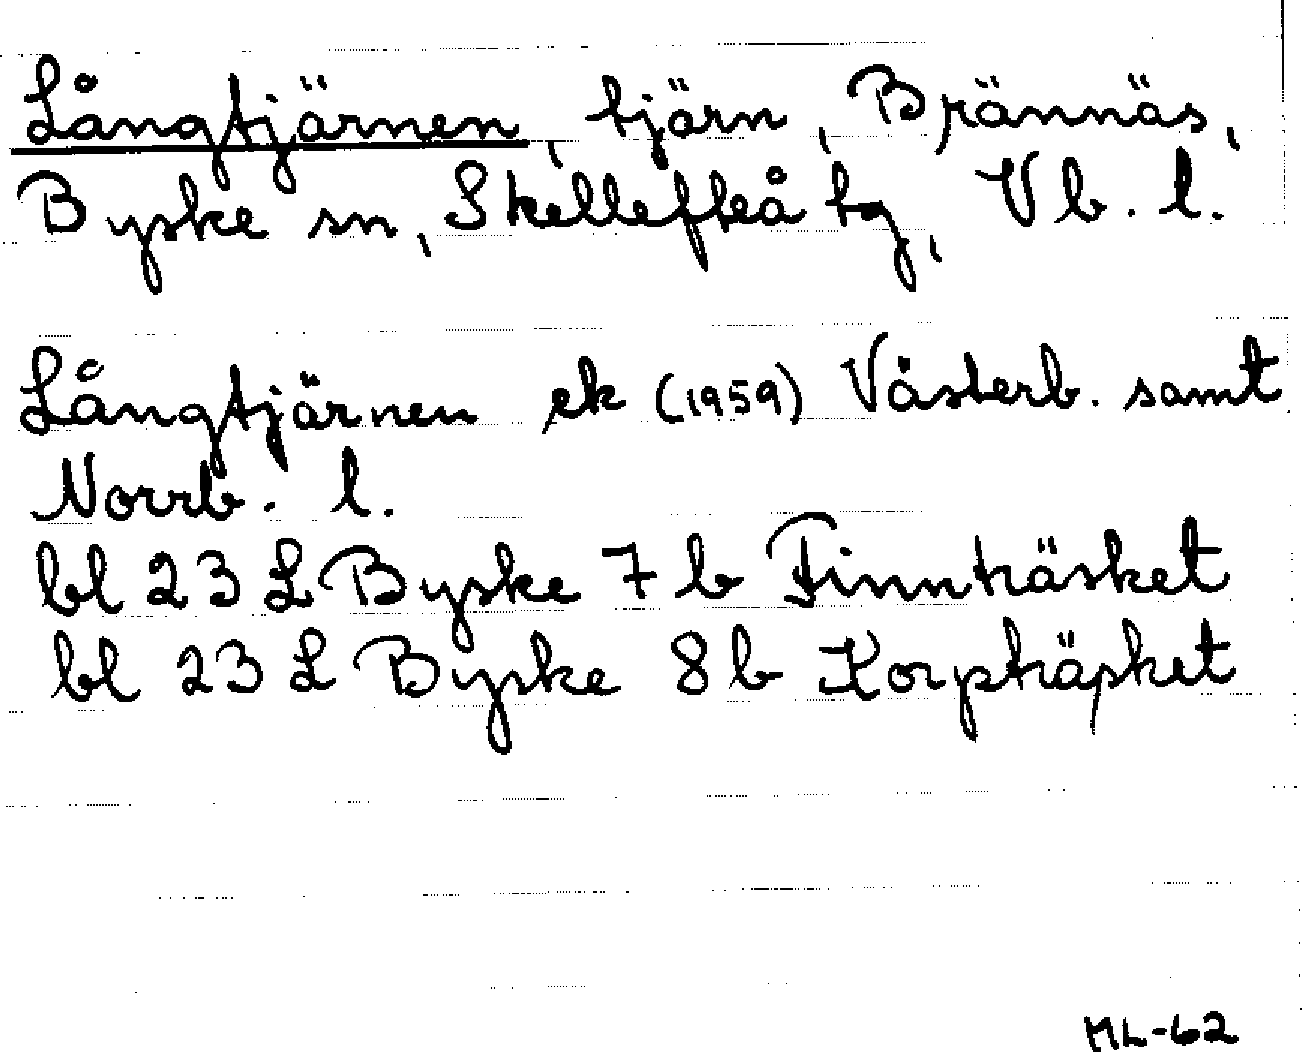 Långtjärnen, tjärn, Brännäs,
Byske sn, Skellefteå tg, Vb. l.
Långtjärnen ek (1959) Västerb. samt
Norrb. l.
bl 23 L Byske 7 b Finnträsket
bl 23 L Byske 8 b Korpträsket
ML-62